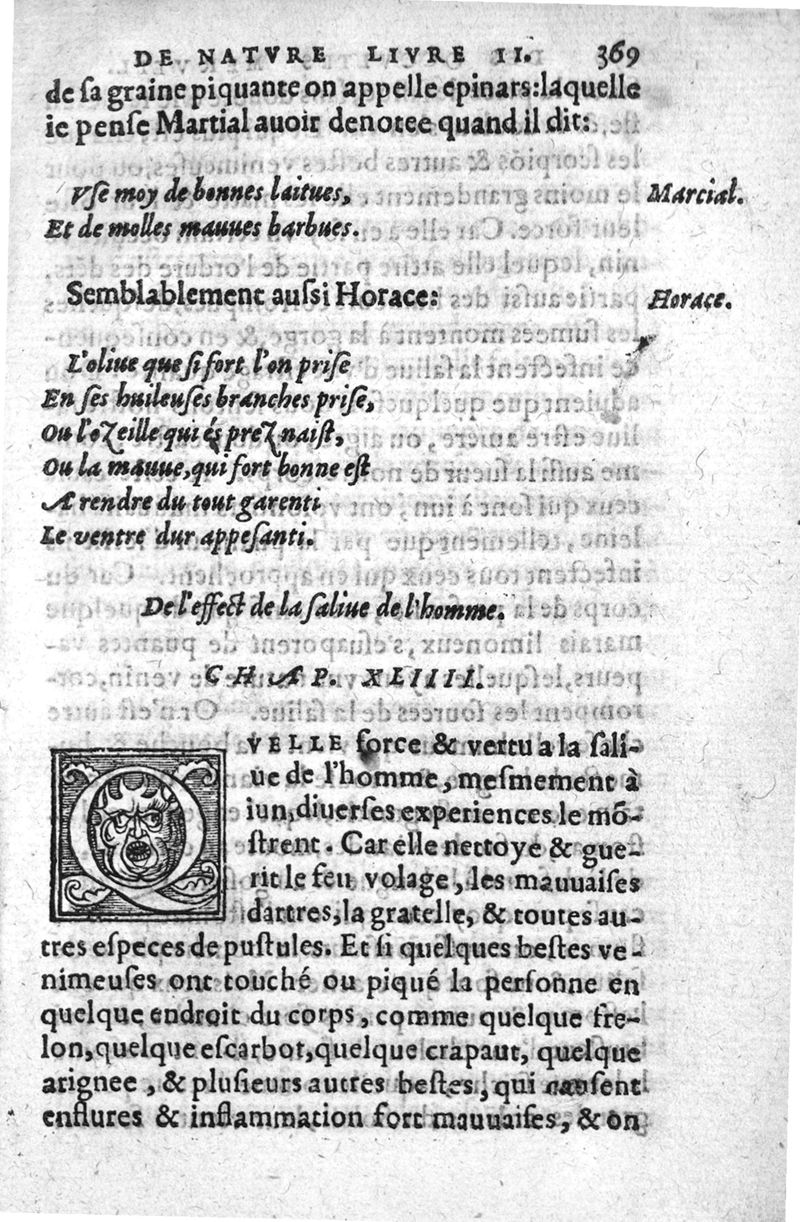 DE NATVRE LIVRE II. 369
de ſa graine piquante on appelle epinars:laquelle
ie penſe Martial auoir denotee quand il dit:
Vſe moy de bonnes laitues,
Marcial.
Et de molles mauues barbues.
Semblablement auſſi Horace:
Horace.
L'oliue que ſi fort l'on priſe
En ſes huileuſes branches priſe,
Ou l'oZeille qui és preZ naiſt,
Ou la mauue, qui fort bonne eſt
A rendre du tout garenti
Le ventre dur appeſanti.
De l'effect de la ſaliue de l'homme.
CHAP. XLIIII.
QVELLE force & vertu a la ſali-
ue de l'homme, meſmement à
iun, diuerſes experiences le mō-
ſtrent. Car elle nettoye & gue-
rit le feu volage, les mauuaiſes
dartres, la gratelle, & toutes au-
tres eſpeces de puſtules. Et ſi quelques beſtes ve-
nimeuſes ont touché ou piqué la perſonne en
quelque endroit du corps, comme quelque fre-
lon, quelque eſcarbot, quelque crapaut, quelque
arignee, & pluſieurs autres beſtes, qui cauſent
enflures & inflammation fort mauuaiſes, & on